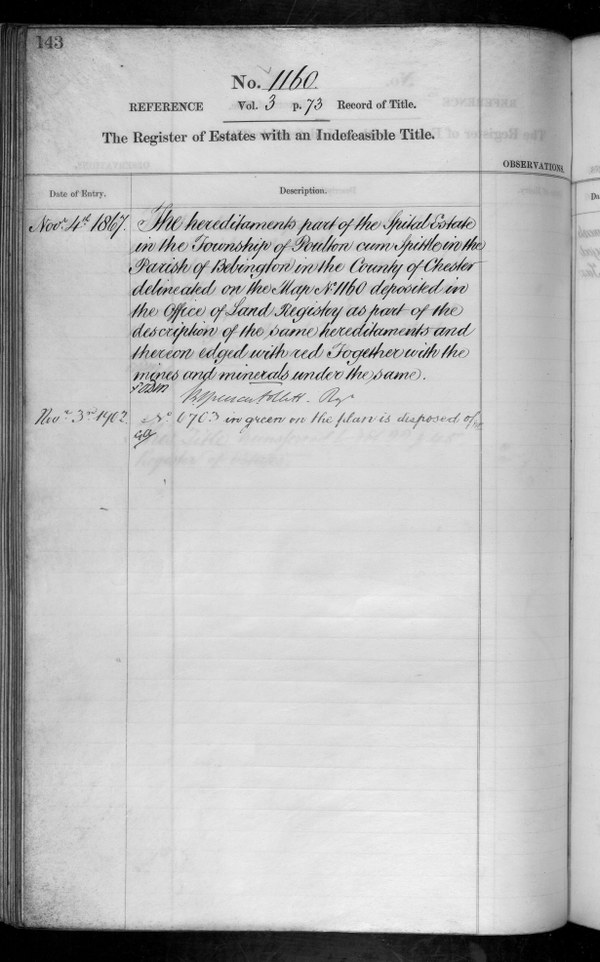 143
No. 1160.
REFERENCE Vol. 3 p. 73 Record of Title.
The Register of Estates with an Indefeasible Title.
OBSERVATIONS.
Date of Entry.
Description.
Novr. 4th 1867. The hereditaments part of the Spital Estate
in the Township of Poulton cum Spittle in the
Parish of Bebington in the County of Chester
delineated on the Map No. 1160 deposited in
the Office of Land Registry as part of the
description of the same hereditaments and
thereon edged with red Together with the
mines and minerals under the same.
Brent Spencer Follett Regr.
Novr. 3rd 1902. No. 6763 in green on the plan is disposed of